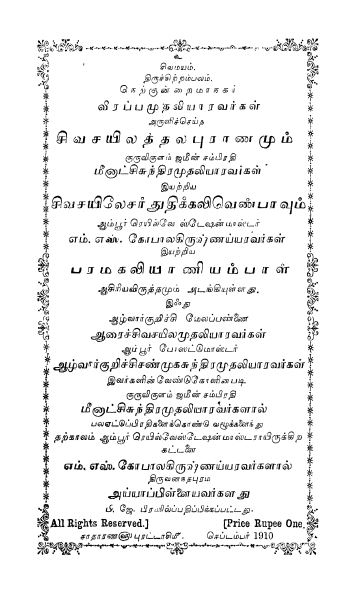 உ
சிவமயம்.
திருச்சிற்றம்பலம்.
நெற்குன்றைமாநகர்
வீரப்பமுதலியாரவர்கள்
அருளிச்செய்த
சிவசயிலத்தலபுராணமும்
குருவிகுளம் ஜமீன் சம்பிரதி
மீனாட்சிசுந்திரமுதலியாரவர்கள்
இயற்றிய
சிவசயிலேசர் துதிக்கலிவெண்பாவும்
ஆம்பூர் ரெயில்வே ஸ்டேஷன்மாஸ்டர்
எம். எஸ். கோபாலகிருஷ்ணய்யரவர்கள்
இயற்றிய
பரமகலியாணியம்பாள்
ஆசிரியவிருத்தமும் அடங்கியுள்ளது.
இஃது
ஆழ்வார்குறிச்சி மேலப்பண்ணை
ஆரைச்சிவசயிலமுதலியாரவர்கள்
ஆம்பூர் போஸ்ட்மாஸ்டர்
ஆழ்வார்குறிச்சிசண்முகசுந்திரமுதலியாரவர்கள்
இவர்களின்வேண்டுகோளின்படி
குருவிகுளம் ஜமீன் சம்பிரதி
மீனாட்சிசுந்திரமுதலியாரவர்களால்
பலஏட்டுப்பிரதிகளைக்கொண்டு வழுக்களைந்து
தற்காலம் ஆம்பூர் ரெயில்வேஸ்டேஷன்மாஸ்டராயிருக்கிற
கட்டளை
எம். எஸ். கோபாலகிருஷ்ணய்யரவர்களால்
திருவனந்தபுரம்
அய்யாப்பிள்ளையவர்களது
பி, ஜே. பிரஸில்பதிப்பிக்கப்பட்டது.
All Rights Reserved.] [Price Rupee One.
சாதாரணஹு புரட்டாசிமீ. செப்டம்பர் 1910